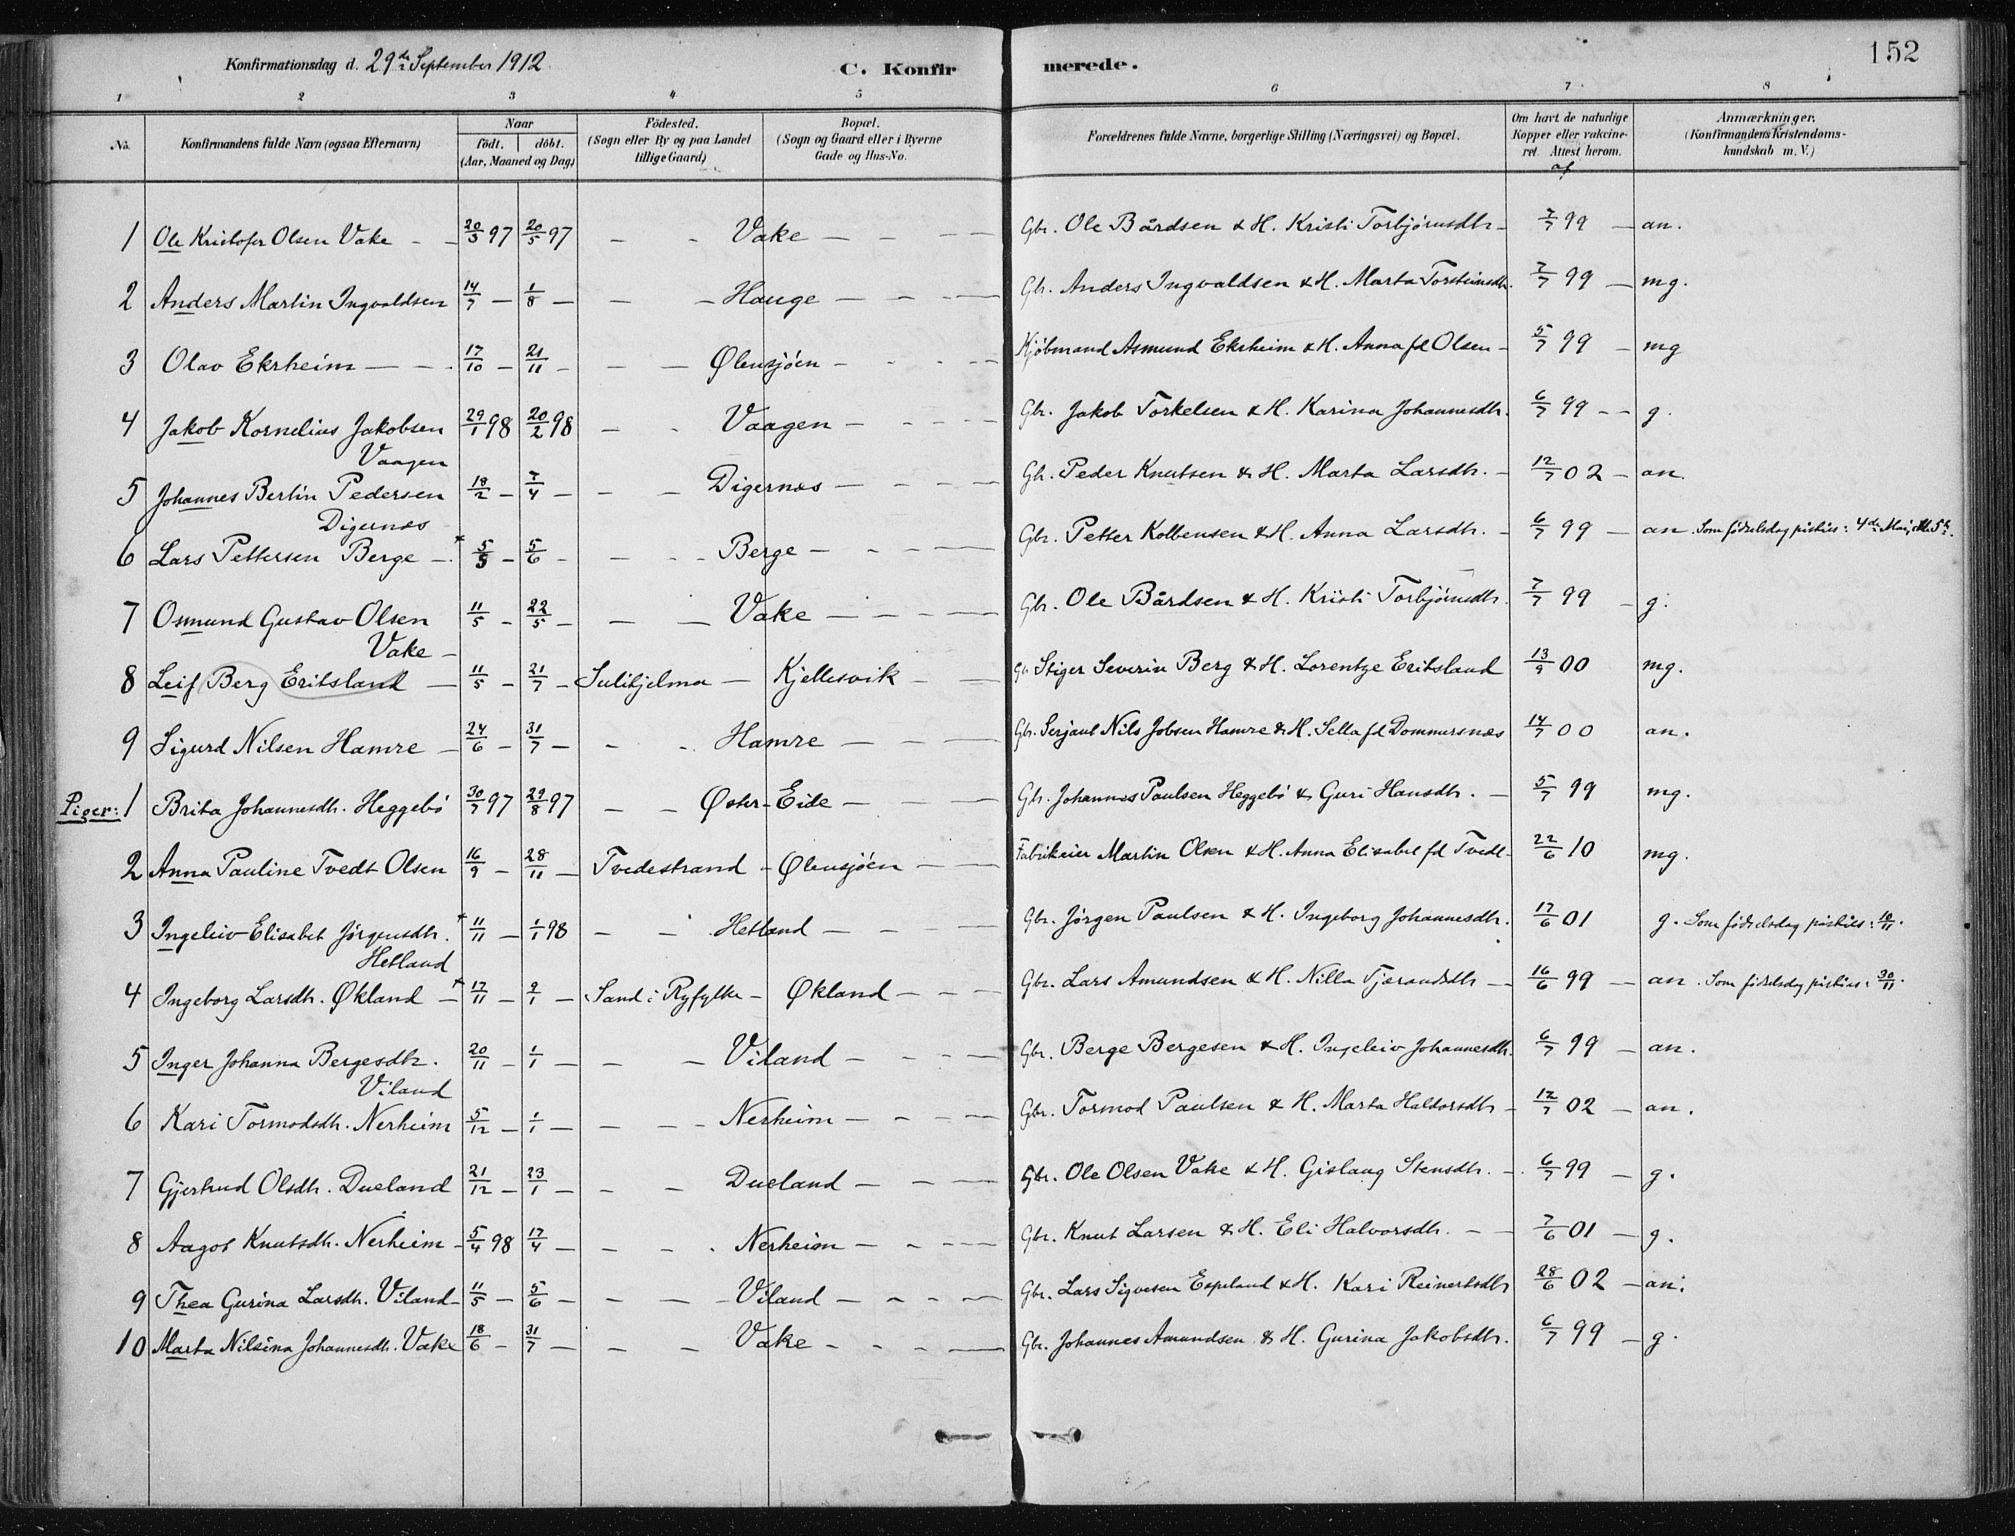 152
Konfirmationsdag d. 29de September 1912. C. Konfirmerede.
1 2 3 4 5 6 7 8
No. Konfirmandens fulde Navn (ogsaa Efternavn) Naar født. døbt. (Aar, Maaned og Dag) Fødested. (Sogn eller By og paa Landet tillige Gaard) Bopæl. (Sogn og Gaard eller i Byerne Gade og Hus-No. Forældrenes fulde Navne, borgerlige Stilling (Næringsvei) og Bopæl. Om havt de naturlige Kopper eller vakcineret. Attest herom. af Anmærkninger. (Konfirmandens Kristendomskundskab m. V.)
1 Ole Kristofer Olsen Vake 20/3 97 20/5 97 — Vake — Gbr. Ole Bårdsen & H. Kristi Torbjørnsdtr 7/7 99 — an.
2 Anders Martin Ingvaldsen 14/7 — 1/8 — — Hauge — Gbr. Anders Ingvaldsen & H. Marta Torsteinsdtr. 7/7 99 — mg.
3 Olav Ekrheim 17/10 — 21/11 — — Ølensjøen — Kjøbmand Asmund Ekrheim & H. Anna fd Olsen 5/7 99 — mg
4 Jakob Kornelius Jakobsen Vaagen 29/1 98 20/2 98 — Vaagen — Gbr. Jakob Torkelsen & H. Karina Johannesdtr. 6/7 99 — g.
5 Johannes Bertin Pedersen Digernes 18/2 — 7/4 — — Digernes — Gbr. Peder Knutsen & H. Marta Larsdtr. 12/7 02 — an
6 Lars Pettersen Berge * 5/5 — 5/6 — — Berge — Gbr. Petter Kolbensen & H. Anna Larsdtr. 6/7 99 — an. Som fødselsdag påståes: 4de Mai,
7 Osmund Gustav Olsen Vake 11/5 — 22/5 — — Vake — Gbr. Ole Bårdsen & H. Kristi Torbjørnsdtr. 7/7 99 — g.
8 Leif (Berg Eritsland) 11/5 — 21/7 — Sulitjelma — Kjellesvik — Gbr Stiger Severin Berg & H. Lorentze Eritsland 13/9 00 mg.
9 Sigurd Nilsen Hamre 24/6 — 31/7 — — Hamre — Gbr. Serjant Nils Jobsen Hamre & H. Sella fd Dommersnes 14/7 00 an.
Piger: 1 Brita Johannesdtr. Heggebø 30/7 97 29/8 97 — Øster-Eide — Gbr. Johannes Paulsen Heggebø & Guri Hansdtr. 5/7 99 mg.
2 Anna Pauline Tvedt Olsen 16/9 — 28/11 — Tvedestrand — Ølensjøen — Fabrikeier Martin Olsen & H. Anna Elisabet fd Tvedt 22/6 10 mg.
3 Ingeleiv Elisabet Jørgensdtr. Hetland * 11/11 — 1/1 98 — Hetland — Gbr. Jørgen Paulsen & H. Ingeborg Johannesdtr. 17/6 01 g. Som fødselsdag påståes: 10/11.
4 Ingeborg Larsdtr. Økland * 17/11 — 9/1 — Sand i Ryfylke — Økland — Gbr. Lars Amundsen & H. Nilla Tjerandsdtr 16/6 99 — an. Som fødselsdag påståes: 30/11.
5 Inger Johanna Bergesdtr. Viland 20/11 — 1/1 — — Viland — Gbr. Berge Bergesen & H. Ingeleiv Johannesdtr. 6/7 99 — an.
6 Kari Tormodsdtr. Nerheim 5/12 — 1/1 — — Nerheim — Gbr. Tormod Paulsen & H. Marta Haldorsdtr 12/7 02 — an.
7 Gjertrud Olsdtr. Dueland 21/12 — 23/1 — — Dueland — Gbr. Ole Olsen Vake & H. Gislaug Stensdtr. 6/7 99 — g.
8 Aagot Knutsdtr. Nerheim 5/4 98 17/4 — — Nerheim — Gbr. Knut Larsen & H. Eli Halvorsdtr. 7/6 01 — g.
9 Thea Gurina Larsdtr. Viland 11/5 — 5/6 — — Viland — Gbr. Lars Sigvesen Espeland & H. Kari Reinertsdtr 28/6 02 — an.
10 Marta Nilsina Johannesdtr. Vake 18/6 — 31/7 — — Vake — Gbr. Johannes Amundsen & H. Gurina Jakobsdtr. 6/7 99 — g.